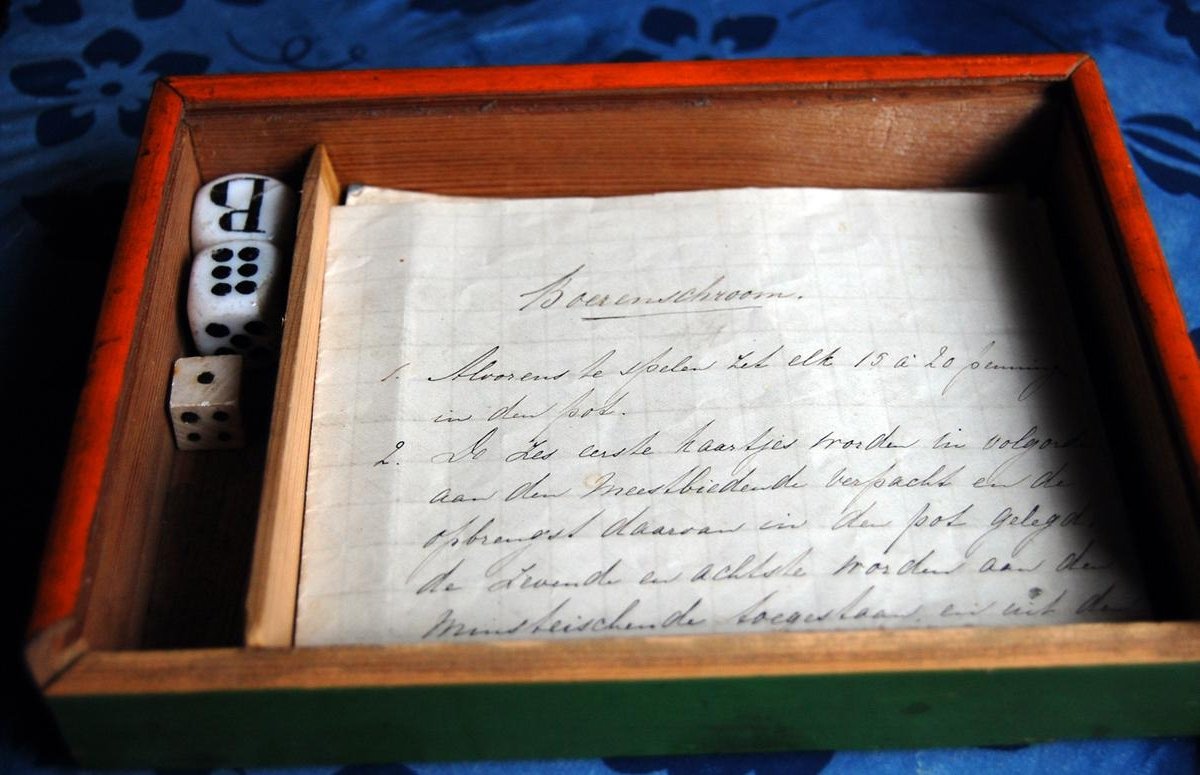 R
Boerenschroom.
1. Alvorens te spelen zet elk 15 à 20 penning
in den pot.
2. De zes eerste kaartjes worden in volgor
aan den meestbiedende verpacht en de
opbrengst daarvan in den pot gelegd,
de zevende en achtste worden aan den
minsteischende toegestaan en uit den